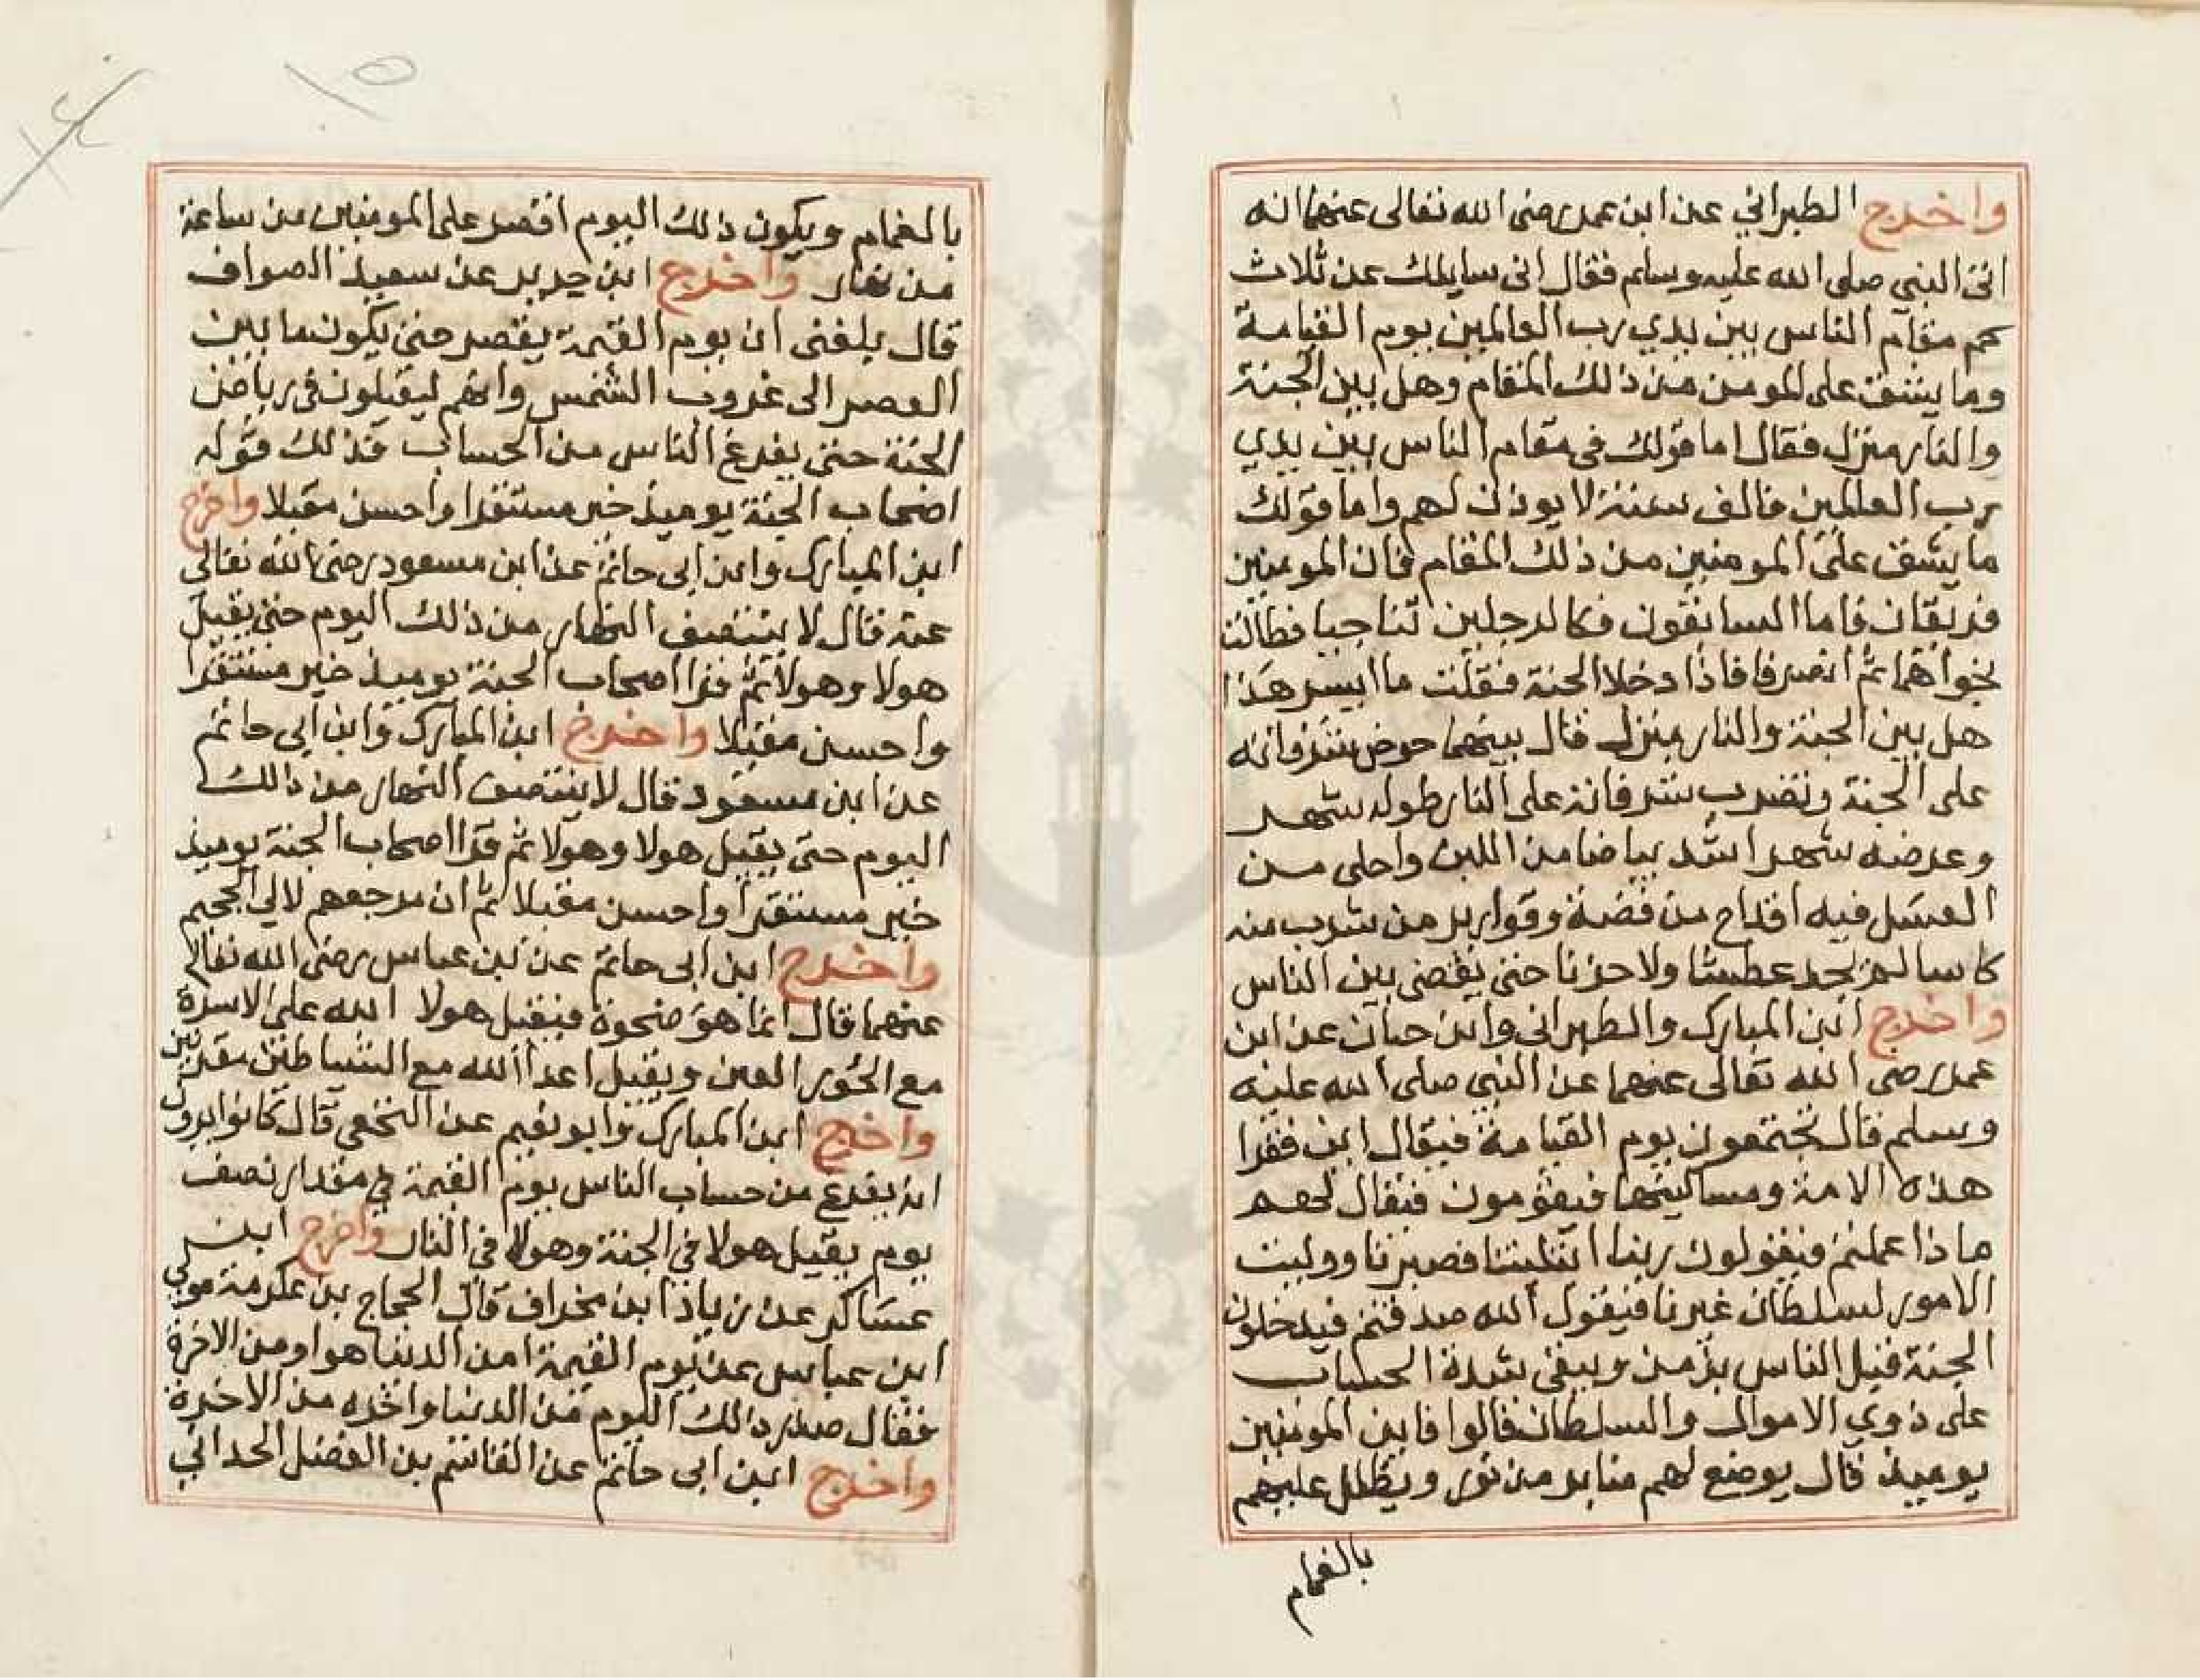 واخرج الطبراني عن ابن عمر رضى الله تعالى عنهما انه
اتى النبي صلى الله عليه وسلم فقال انى سايلك عن ثلاث
كم مقام الناس بين يدي رب العالمين يوم القيامة
وما يشق على المومن من ذلك المقام وهل بين الجنة
والنار منزل فقال اما قولك في مقام الناس بين يدي
رب العلمين فالف سنة لا يوذن لهم واما قولك
ما يشق على المومنين من ذلك المقام فان المومنين
فريقان فاما السابقون فكالرجلين تناجيا فطالت
نجواهما ثم انصرفا فاذا دخلا الجنة فقلت ما ايسر هذا
هل بين الجنة والنار منزل قال بينهما حوض شرفاته
على الجنة وتضرب شرفاته على النار طوله شهر
وعرضه شهر اشد بياضا من اللبن واحلى من
العسل فيه اقداح من فضة وقوارير من شرب منه
كاسا لم يجد عطشا ولا حزنا حتى يقضى بين الناس
واخرج ابن المبارك والطبرانى وابن حبان عن ابن
عمر رضى الله تعالى عنهما عن النبى صلى الله عليه
وسلم قال تجتمعون يوم القيامة فيقال اين فقرا
هذه الامة ومساكينها فيقومون فيقال لهم
ماذا عملتم فيقولون ربنا ابتليتنا فصبرنا ووليت
الامور لسلطان غيرنا فيقول الله صدقتم فيدخلون
الجنة قبل الناس بزمن ويبقى شدة الحساب
على ذوي الاموال والسلطان قالوا فاين المومنين
يوميذ قال يوضع لهم منابر من نور ويظلل عليهم
بالغمام
بالغمام ويكون ذلك اليوم اقصر على المومنين من ساعة
من نهار واخرج ابن جرير عن سعيد الصواف
قال بلغنى ان يوم القيمة يقصر حتى يكون ما بين
العصر الى غروب الشمس وانهم ليقيلون في رياض
الجنة حتى يفرغ الناس من الحساب فذلك قوله
اصحاب الجنة يوميذ خير مستقرا واحسن مقيلا واخرج
ابن المبارك وابن ابى حاتم عن ابن مسعود رضى الله تعالى
عنه قال لا ينتصف النهار من ذلك اليوم حتى يقيل
هولا وهولا ثم قرا اصحاب الجنة يوميذ خير مستقرا
واحسن مقيلا واخرج ابن المبارك وابن ابى حاتم
عن ابن مسعود قال لا ينتصف النهار من ذالك
اليوم حتى يقيل هولا وهولا ثم قرا اصحاب الجنة يوميذ
خير مستقرا واحسن مقيلا ثم ان مرجعهم لالى الجحيم
واخرج ابن ابى حاتم عن ابن عباس رضى الله تعالى
عنهما قال انما هو ضحوة فيقيل هولا الله على الاسرة
مع الحور العين ويقيل اعدا الله مع الشياطين مقرنين
واخرج ابن المبارك وابو نعيم عن النخعى قال كانوا يرون
انه يفرغ من حساب الناس يوم القيمة في مقدار نصف
يوم يقيل هولا في الجنة وهولا في النار واخرج ابن
عساكر عن زياد ابن مخراف قال الحجاج بن عكرمة مولى
ابن عباس عن يوم القيمة امن الدنيا هو او من الاخرة
فقال صدر ذالك اليوم من الدنيا واخره من الاخرة
واخرج ابن ابى حاتم عن القاسم بن الفضل الحداني